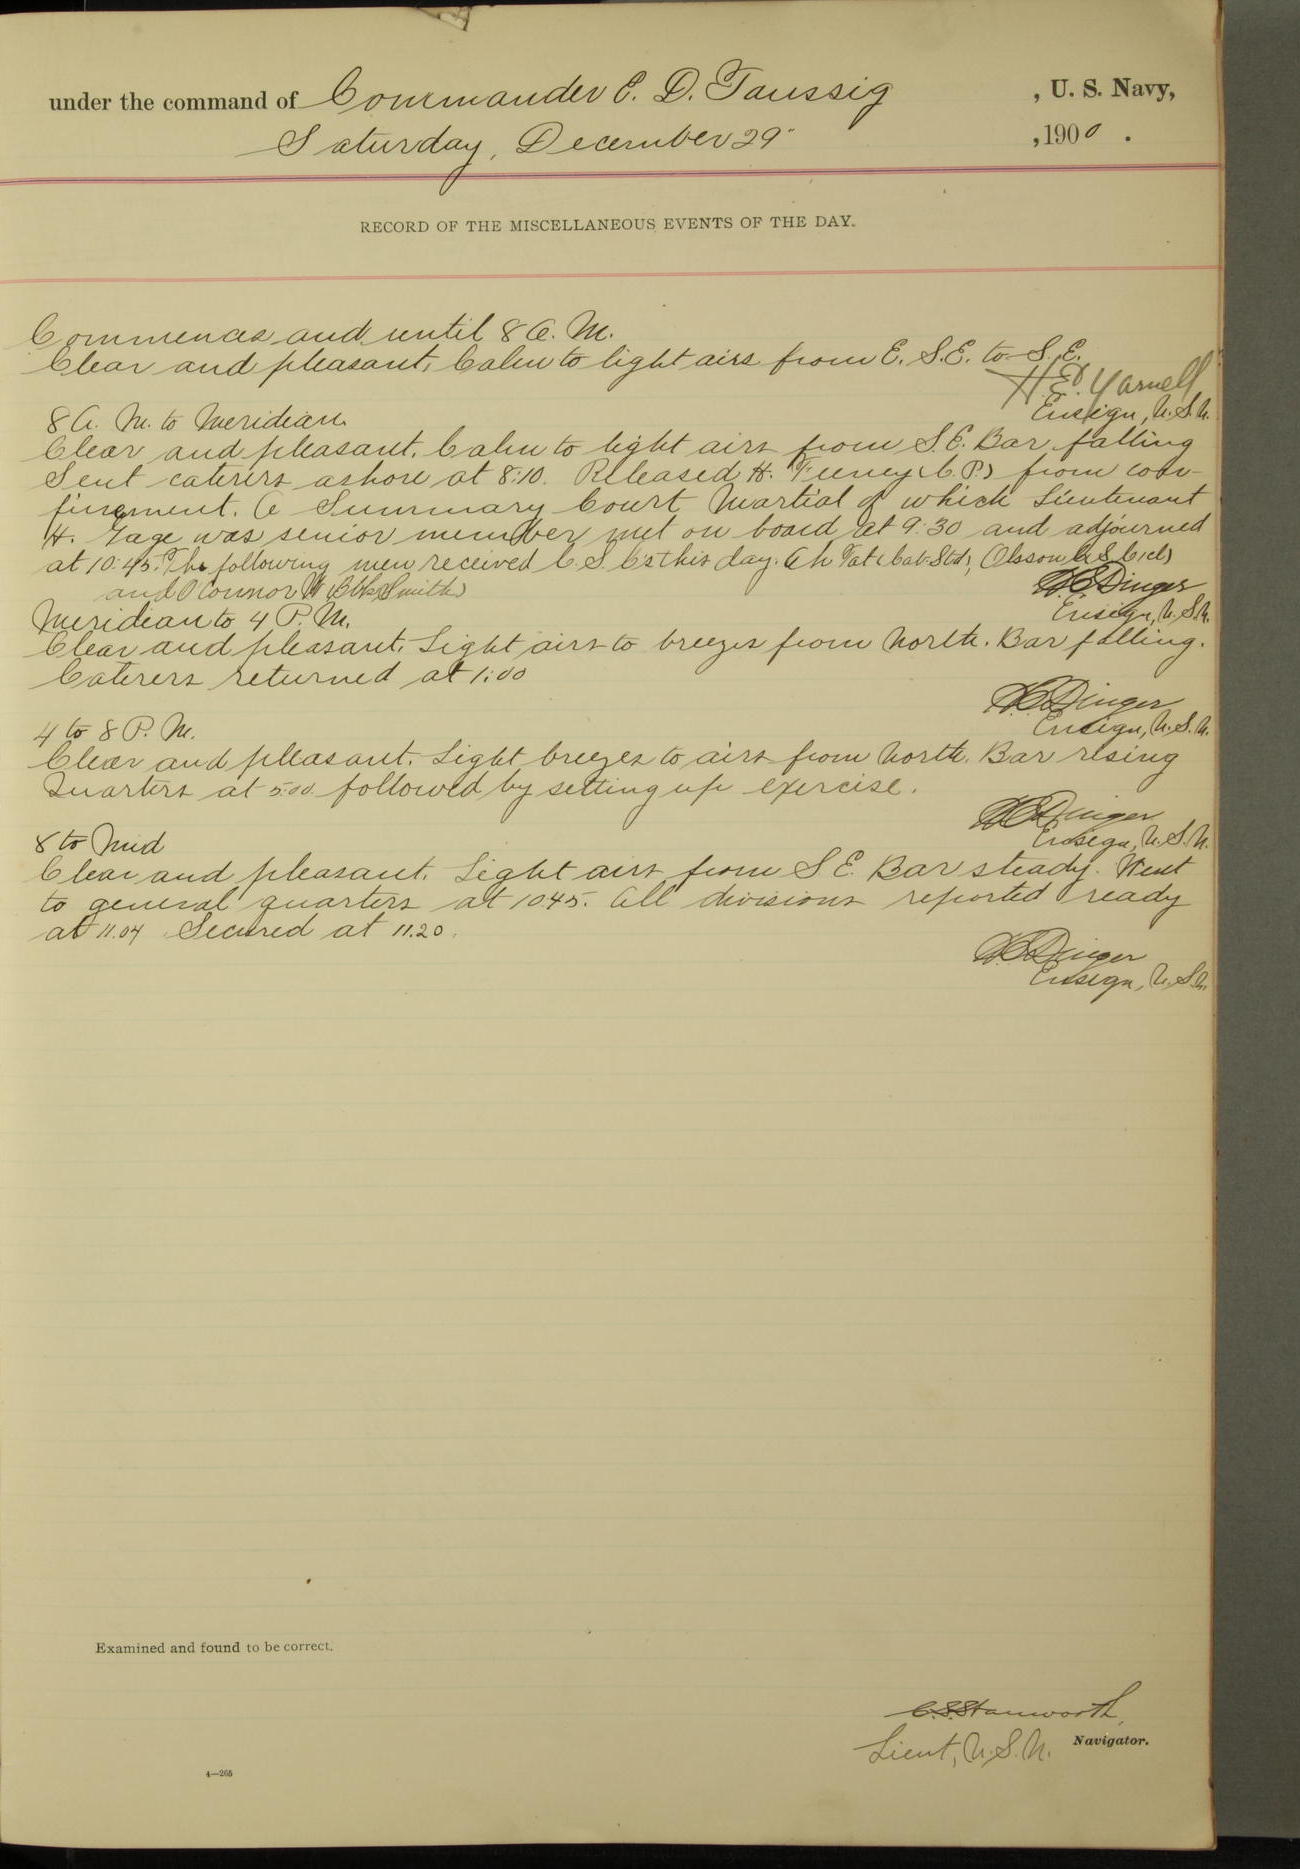 under the command of Commander E. D. Taussig, U. S. Navy,
Saturday, December 29", 1900.
RECORD OF THE MISCELLANEOUS EVENTS OF THE DAY.
Commences and until 8 A. M.
Clear and pleasant. Calm to light airs from E. S.E. to S.E.
H E Yarnell
Ensign, U.S.N.
8 A. M. to Meridian.
Clear and pleasant. Calm to light airs from S.E. Bar falling
Sent caterers ashore at 8:10. Released H. Feeney (C.P.) from con-
finement. A Summary Court Martial of which Lieutenant
H. Gage was senior member met on board at 9:30 and adjourned
at 10:45. The following men received C.S.C's this day. Ah Tat (Cab. Std),
and O'Connor (Blksmith)
H C Dinger
Ensign, U.S.N.
Meridian to 4 P. M.
Clear and pleasant. Light airs to breezes from North. Bar falling.
Caterers returned at 1:00
H C Dinger
Ensign, U.S.N.
4 to 8 P. M.
Clear and pleasant. Light breezes to airs from North. Bar rising
Quarters at 5:00 followed by setting up exercise.
H C Dinger
Ensign, U.S.N.
8 to Mid
Clear and pleasant. Light airs from S E. Bar steady. Went
to general quarters at 10 45. All divisions reported ready
at 11.04 Secured at 11.20.
H C Dinger
Ensign, U.S.N.
Examined and found to be correct.
C.S. Stanworth,
Lieut, U.S.N. Navigator.
4—265